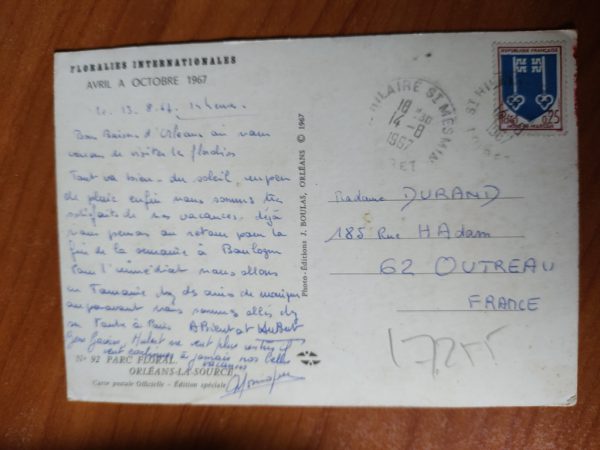 FLORALIES INTERNATIONALES
AVRIL A OCTOBRE 1967
Le 13.8.67
Bon Baisers d'Orléans où nous
venons de visiter le floralies
Tout va bien - du soleil, un peu
de pluie enfin nous sommes très
satisfaits de nos vacances, déjà
nous pensons au retour pour la
fin de la semaine à Boulogne
Pour l'immédiat nous allons
en Touraine chez des amis de
auparavant nous sommes allés chez
à Paris Hubert
Hubert ne veut plus
à jamais nos belles
vacances
Nº 92 PARC FLORAL
ORLÉANS-LA-SOURCE
Carte postale Officielle - Édition spéciale
Photo-Éditions J. BOULAS, ORLÉANS © 1967
HILAIRE ST MESMIN
18 H30
14-8
1967
RET
ST HILAI
REPUBLIQUE FRANÇAISE
0,25
Madame DURAND
185 Rue H Adam
62 OUTREAU
FRANCE
17255